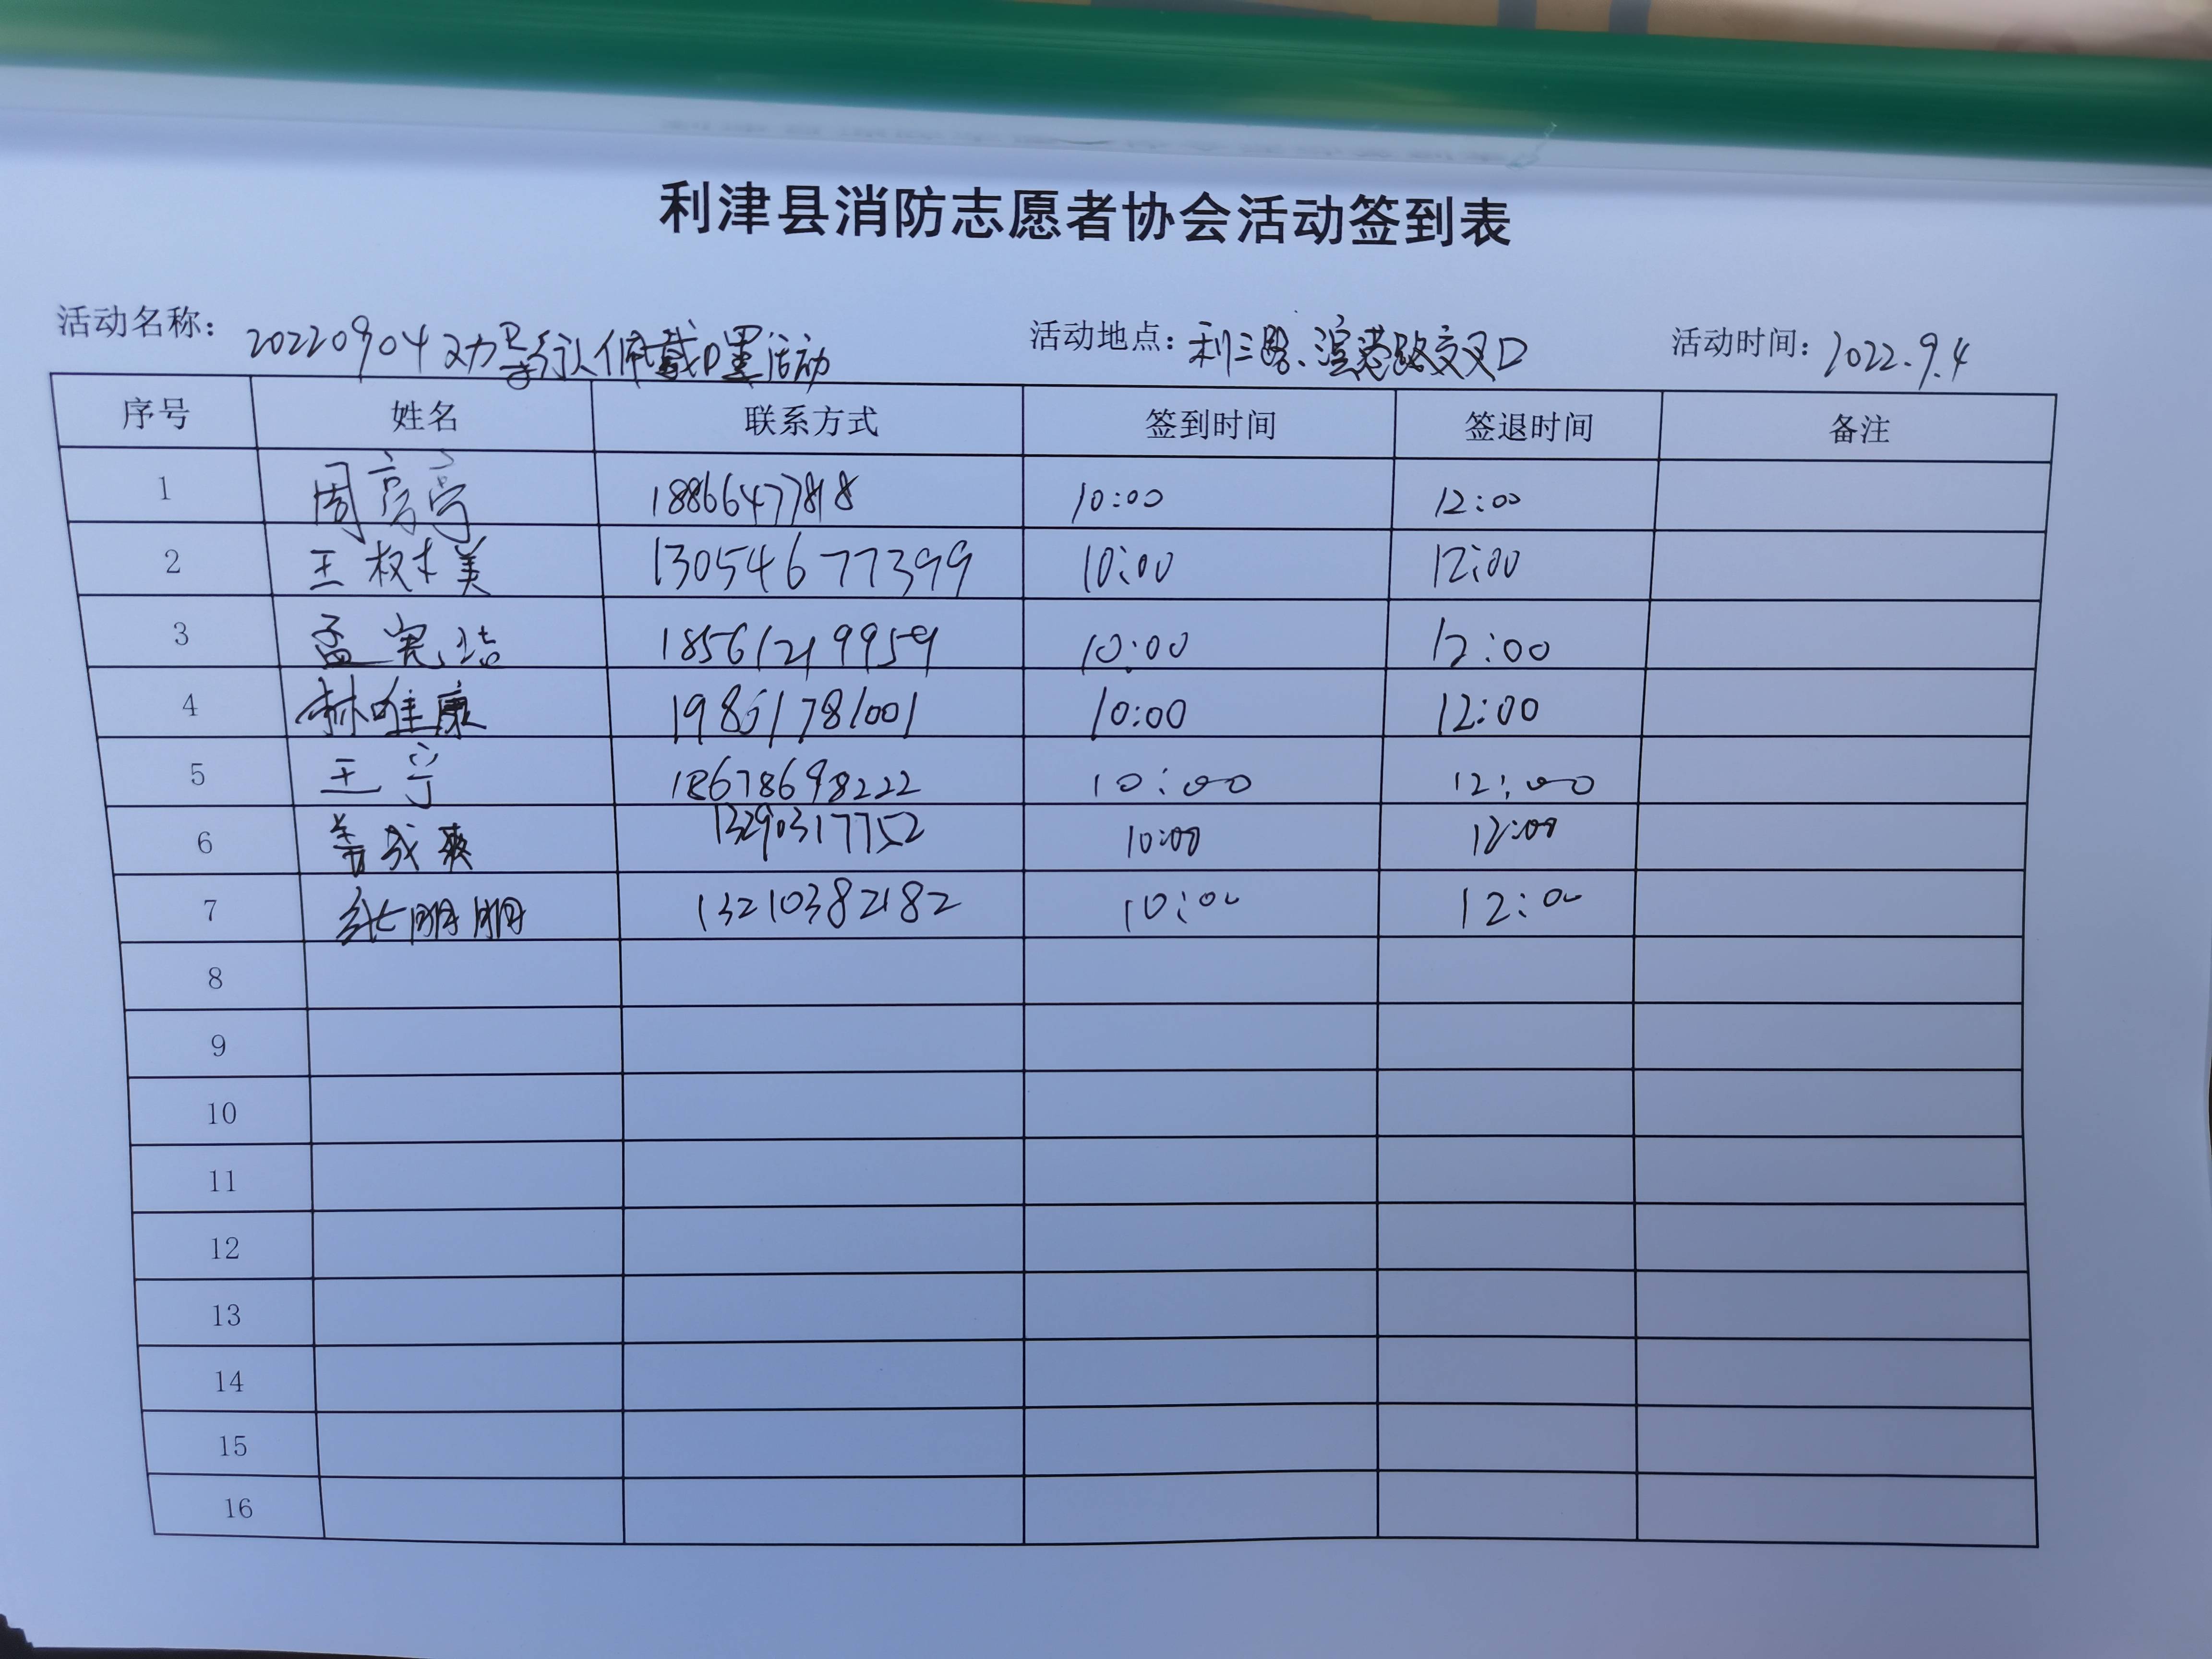 利津县消防志愿者协会活动签到表
活动名称： 20220904劝导行人佩戴口罩活动 活动地点： 利三路、滨港路交叉口 活动时间： 2022.9.4
序号 姓名 联系方式 签到时间 签退时间 备注
1 周亮亮 18866477818 10:00 12:00
2 王 美 13054677399 10:00 12:00
3 孟宪洁 18561219959 10:00 12:00
4 林唯康 10:00 12:00
5 王宁 18678698222 10:00 12:00
6 13290317752 10:00 12:00
7 张朋朋 13210382182 10:00 12:00
8
9
10
11
12
13
14
15
16